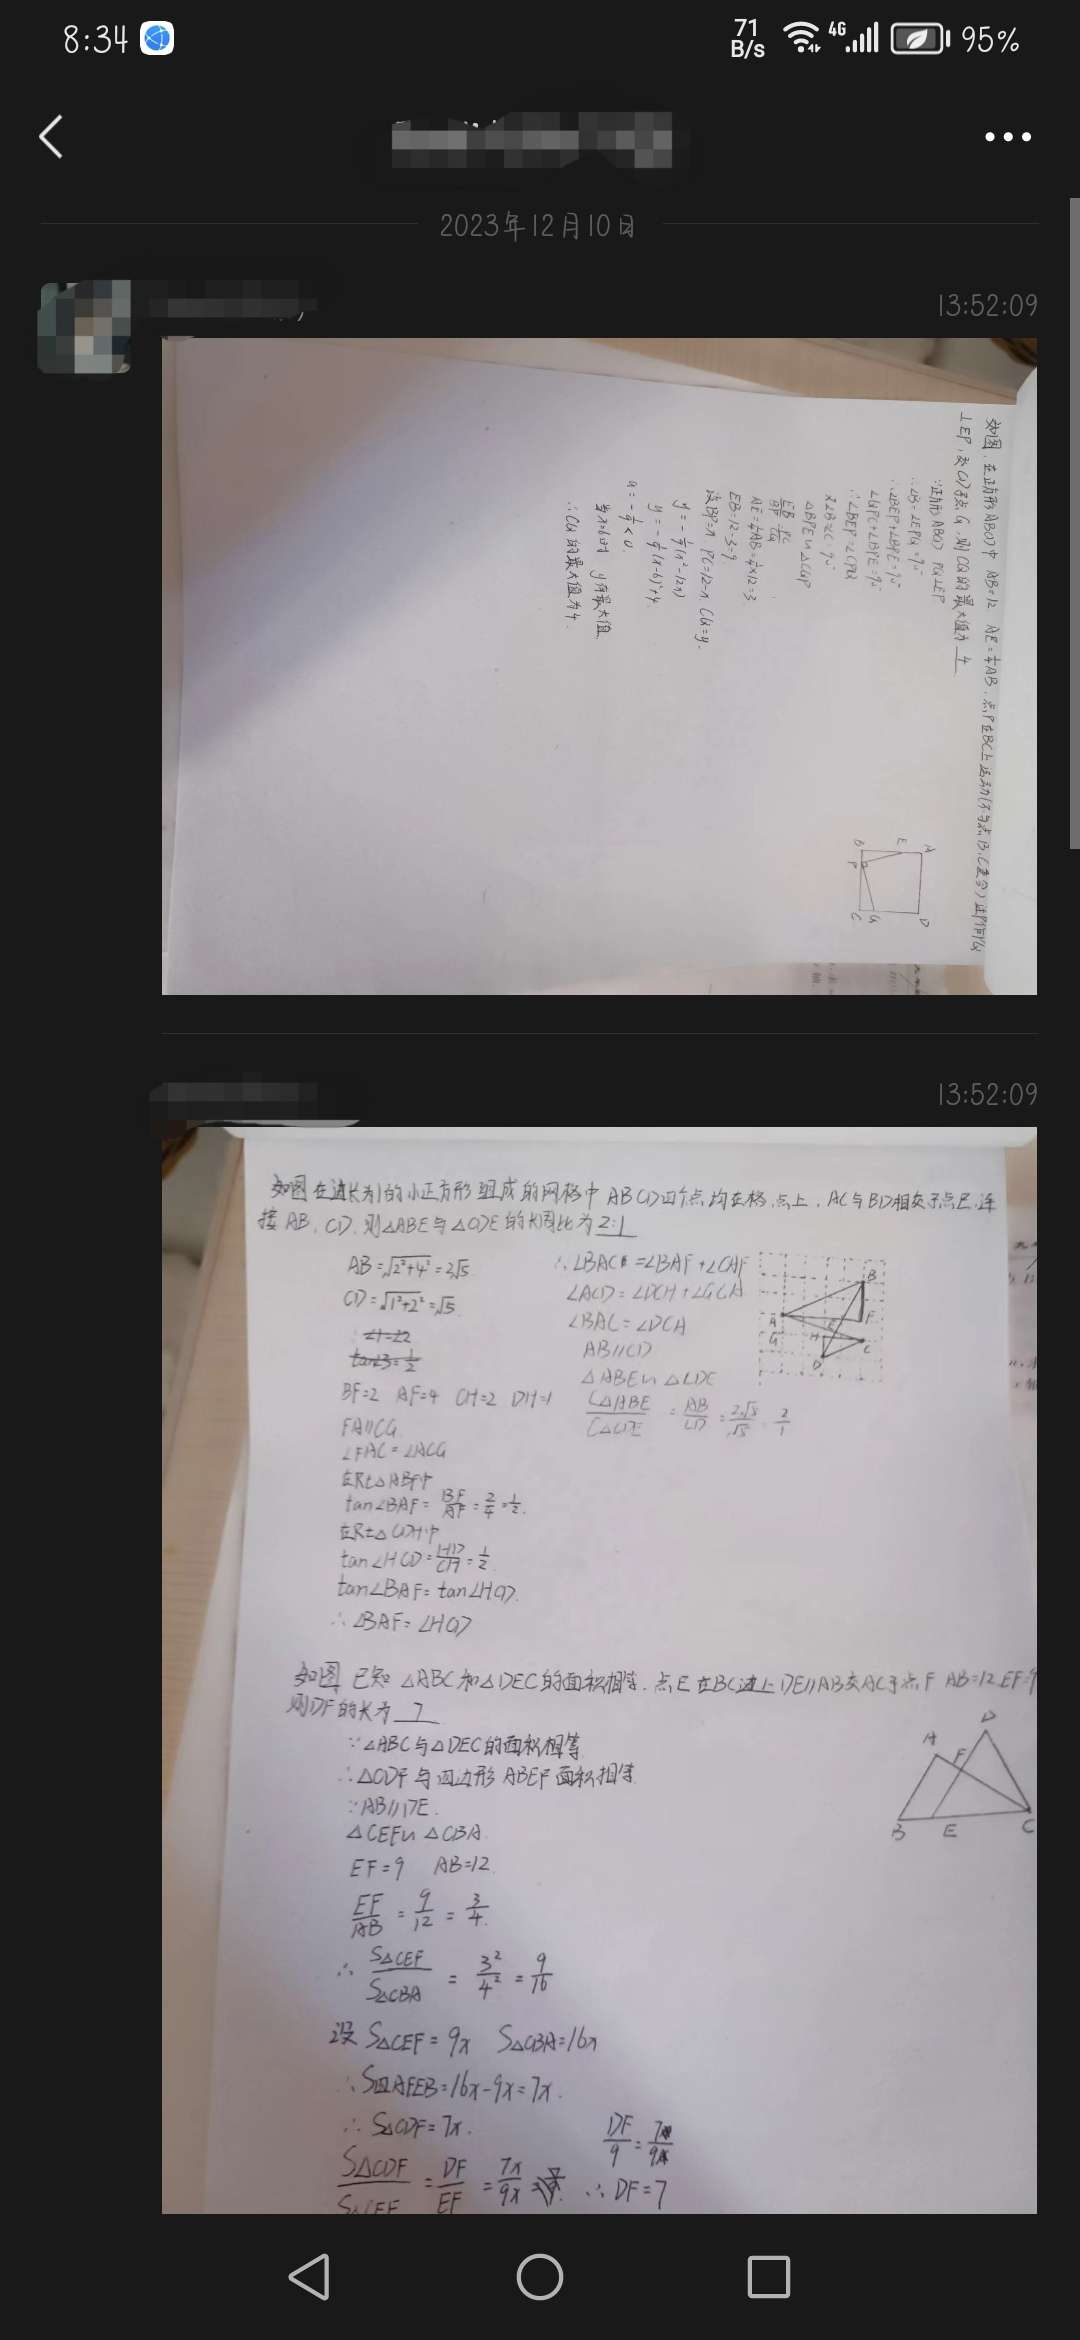 8:34
71
B/s
4G
95%
2023年12月10日
13:52:09
如图,在正方形ABCD中 AB=12 AE=¼AB,点P在BC上运动(不与点B,C重合)过P作PQ
⊥EP,交CD于点Q,则CQ的最大值为 4
∵正方形ABCD PQ⊥EP
∴∠B=∠EPQ=90°
∴∠BEP+∠BPE=90°
∠QPC+∠BPE=90°
∴∠BEP=∠CPQ
又∠B=∠C=90°
△BPE∽△CQP
EB/BP=PC/CQ
AE=¼AB=¼×12=3
EB=12-3=9
设BP=x PC=12-x CQ=y.
y=-1/9(x²-12x)
y=-1/9(x-6)²+4
a=-1/9<0.
当x=6时 y有最大值
∴CQ的最大值为4.
A
D
E
B
P
C
Q
13:52:09
如图在边长为1的小正方形组成的网格中 ABCD四个点均在格点上,AC与BD相交于点E,连
接AB,CD,则△ABE与△CDE的周长比为2:1
AB=√2²+4²=2√5
CD=√1²+2²=√5
∠1=∠2
tan∠3=1/2
BF=2 AF=4 CH=2 DH=1
FA∥CG
∠FAC=∠ACG
在Rt△ABF中
tan∠BAF=BF/AF=2/4=1/2.
在Rt△CDH中
tan∠HCD=HD/CH=1/2
tan∠BAF=tan∠HCD.
∴∠BAF=∠HCD
∴∠BAC=∠BAF+∠CAF
∠ACD=∠DCH+∠GCA
∠BAC=∠DCA
AB∥CD
△ABE∽△CDE
C△ABE/C△CDE=AB/CD=2√5/√5=2/1
B
A
F
E
G
H
C
D
如图 已知 △ABC和△DEC的面积相等.点E在BC边上 DE∥AB交AC于点F AB=12 EF=9
则DF的长为 7
∵△ABC与△DEC的面积相等
∴△CDF与四边形ABEF面积相等
∵AB∥DE.
△CEF∽△CBA.
EF=9 AB=12.
EF/AB=9/12=3/4.
∴S△CEF/S△CBA=3²/4²=9/16
设S△CEF=9x S△CBA=16x
∴S四AFEB=16x-9x=7x.
∴S△CDF=7x.
S△CDF/S△CEF=DF/EF=7x/9x
DF/9=7x/9x
∴DF=7
D
A
F
B
E
C